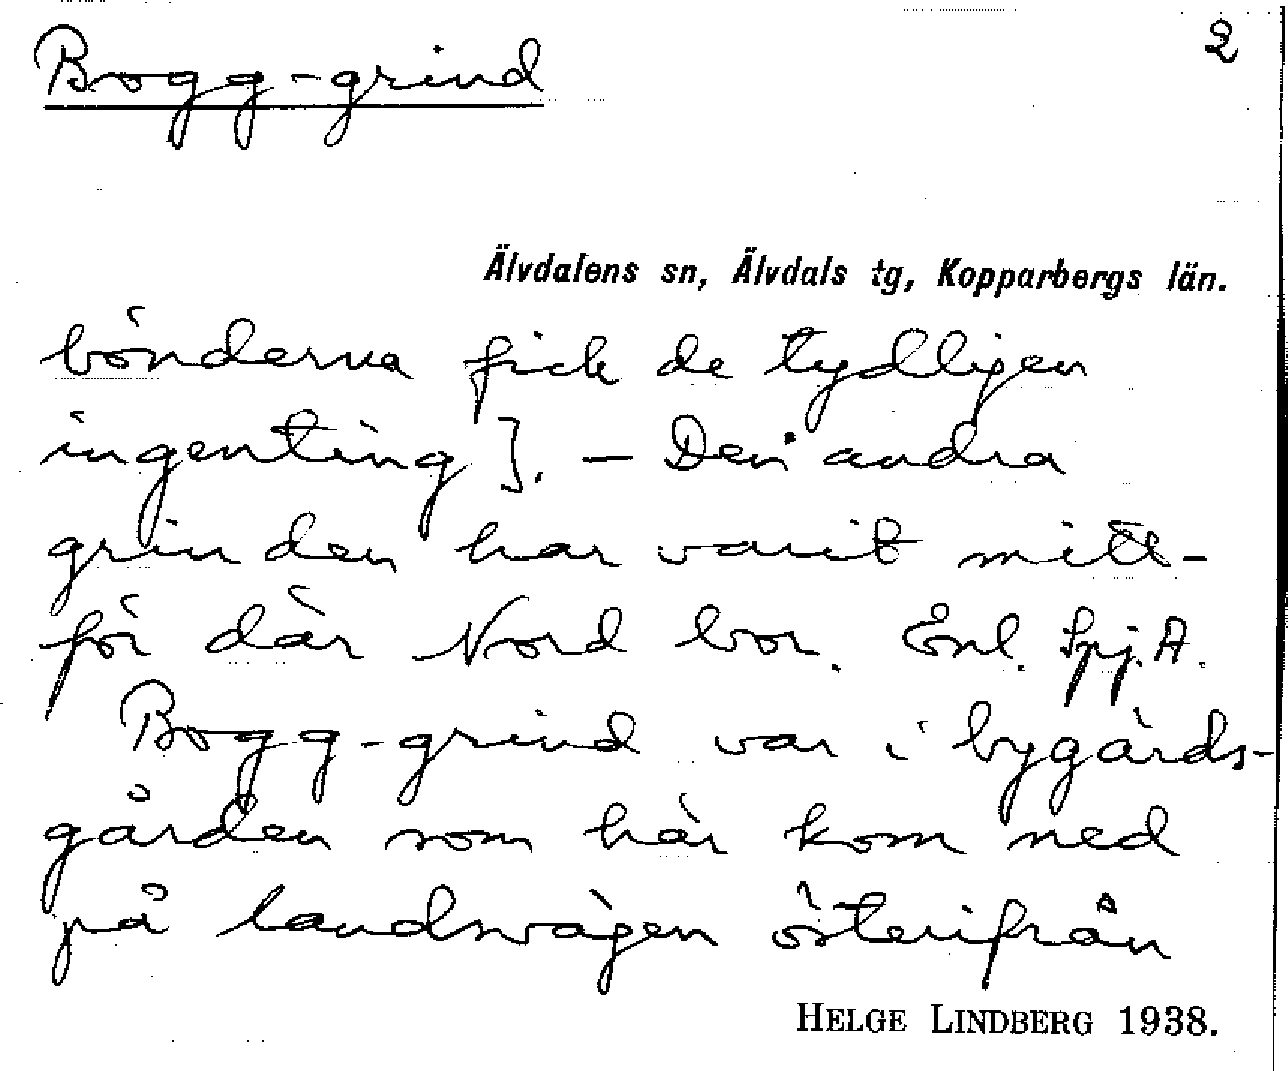 Bogg-grind 2
Älvdalens sn, Älvdals tg, Kopparbergs län.
bönderna fick de tydligen
ingenting]. — Den andra
grinden har varit mitt-
för där Nord bor. Enl. Spj. A.
Bogg-grind var i bygärds-
gården som här kom ned
på landsvägen österifrån
HELGE LINDBERG 1938.